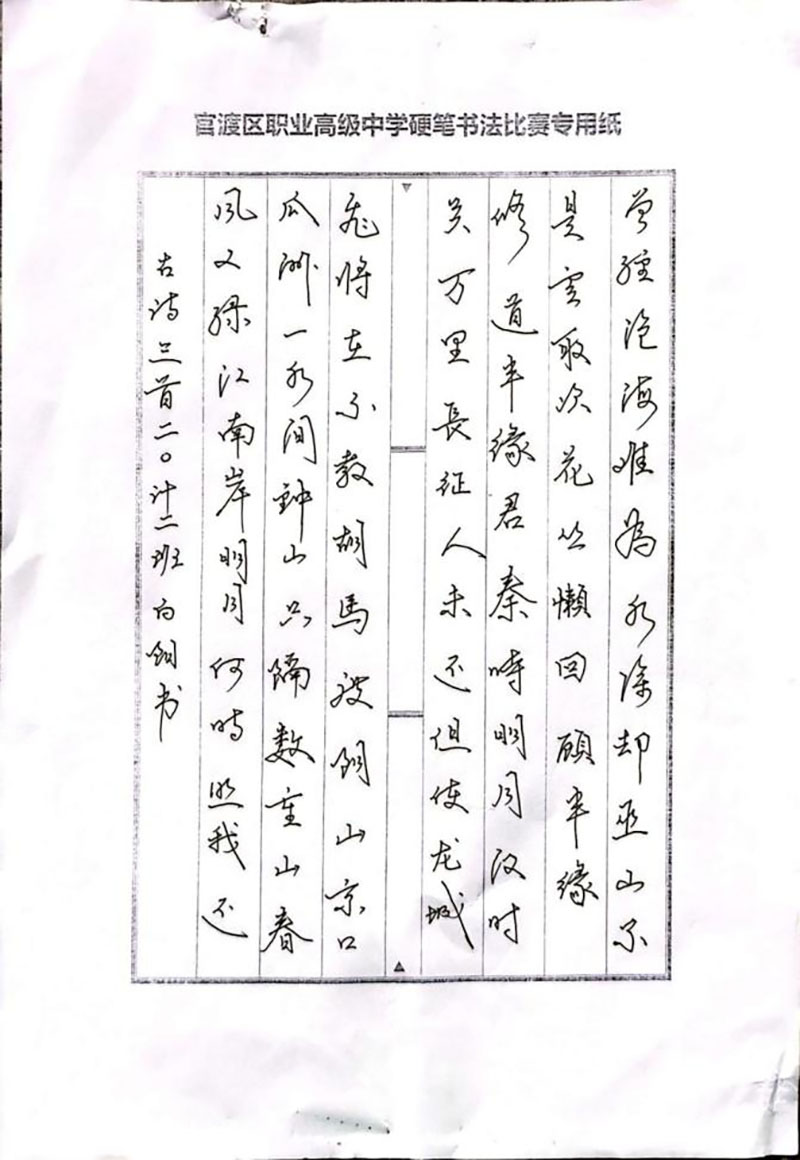 官渡区职业高级中学硬笔书法比赛专用纸
曾經滄海难為水除却巫山不
是雲取次花丛懒回顾半缘
修道半缘君秦時明月汉时
关万里長征人未还但使龙城
飛将在不教胡馬渡阴山京口
瓜洲一水间钟山只隔数重山春
风又绿江南岸明月何時照我还
古诗三首二〇计二班白书